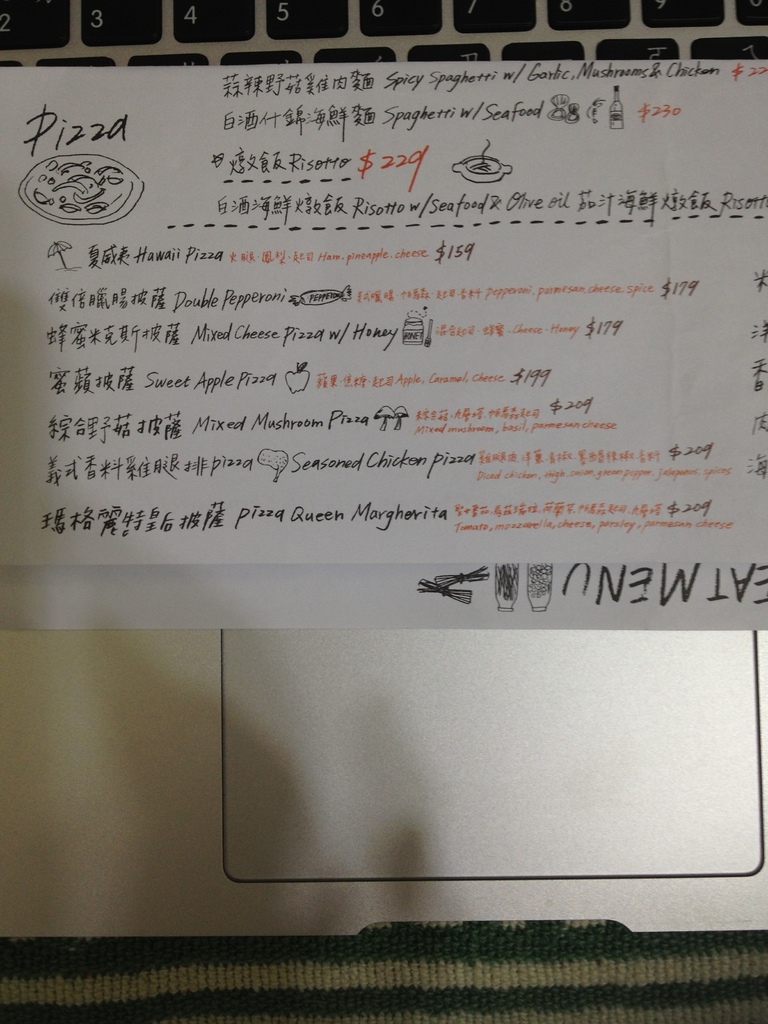 2 3 4 5 6 7 8 9
蒜辣野菇雞肉麵 Spicy Spaghetti w/ Garlic, Mushrooms & Chicken
白酒什錦海鮮麵 Spaghetti w/ Seafood $230
Pizza
燉飯 Risotto $229
白酒海鮮燉飯 Risotto w/ Seafood & Olive oil 茄汁海鮮燉飯 Risott
夏威夷 Hawaii Pizza 火腿·鳳梨·起司 Ham, pineapple, cheese $159
雙倍臘腸披薩 Double Pepperoni PEPPERONI pepperoni, parmesan, cheese, spice $179
蜂蜜米克斯披薩 Mixed Cheese Pizza w/ Honey HONEY 混合起司·蜂蜜·Cheese·Honey $179
蜜蘋披薩 Sweet Apple Pizza 蘋果·焦糖·起司 Apple, Caramel, Cheese $199
綜合野菇披薩 Mixed Mushroom Pizza $209
Mixed mushroom, basil, parmesan cheese
義式香料雞腿排pizza Seasoned Chicken pizza $209
Diced chicken, thigh, onion, green pepper, jalapenos, spices
瑪格麗特皇后披薩 pizza Queen Margherita $209
Tomato, mozzarella, cheese, parsley, parmesan cheese
米
洋
香
肉
海
EAT MENU